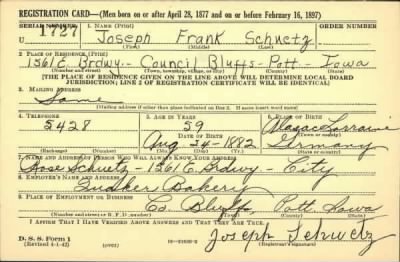 REGISTRATION CARD—(Men born on or after April 28, 1877 and on or before February 16, 1897)
SERIAL NUMBER 1. NAME (Print) ORDER NUMBER
U 1727 Joseph Frank Schuetz
(First) (Middle) (Last)
2. PLACE OF RESIDENCE (Print)
1561 E. Brdwy. - Council Bluffs - Pott - Iowa
(Number and street) (Town, township, village, or city) (County) (State)
[THE PLACE OF RESIDENCE GIVEN ON THE LINE ABOVE WILL DETERMINE LOCAL BOARD
JURISDICTION; LINE 2 OF REGISTRATION CERTIFICATE WILL BE IDENTICAL]
3. MAILING ADDRESS
Same
[Mailing address if other than place indicated on line 2. If same insert word same]
4. TELEPHONE 5. AGE IN YEARS 6. PLACE OF BIRTH
5428 59 Alsace Lorraine
DATE OF BIRTH (Town or county)
Aug 24 - 1882 Germany
(Exchange) (Number) (Mo.) (Day) (Yr.) (State or country)
7. NAME AND ADDRESS OF PERSON WHO WILL ALWAYS KNOW YOUR ADDRESS
Rose Schuetz - 1561 E. Brdwy - City
8. EMPLOYER'S NAME AND ADDRESS
Bakery
9. PLACE OF EMPLOYMENT OR BUSINESS
Co. Bluffs, Pott. Iowa
(Number and street or R. F. D. number) (Town) (County) (State)
I AFFIRM THAT I HAVE VERIFIED ABOVE ANSWERS AND THAT THEY ARE TRUE.
D. S. S. Form 1
(Revised 4-1-42) (over) Joseph Schuetz
(Registrant's signature)